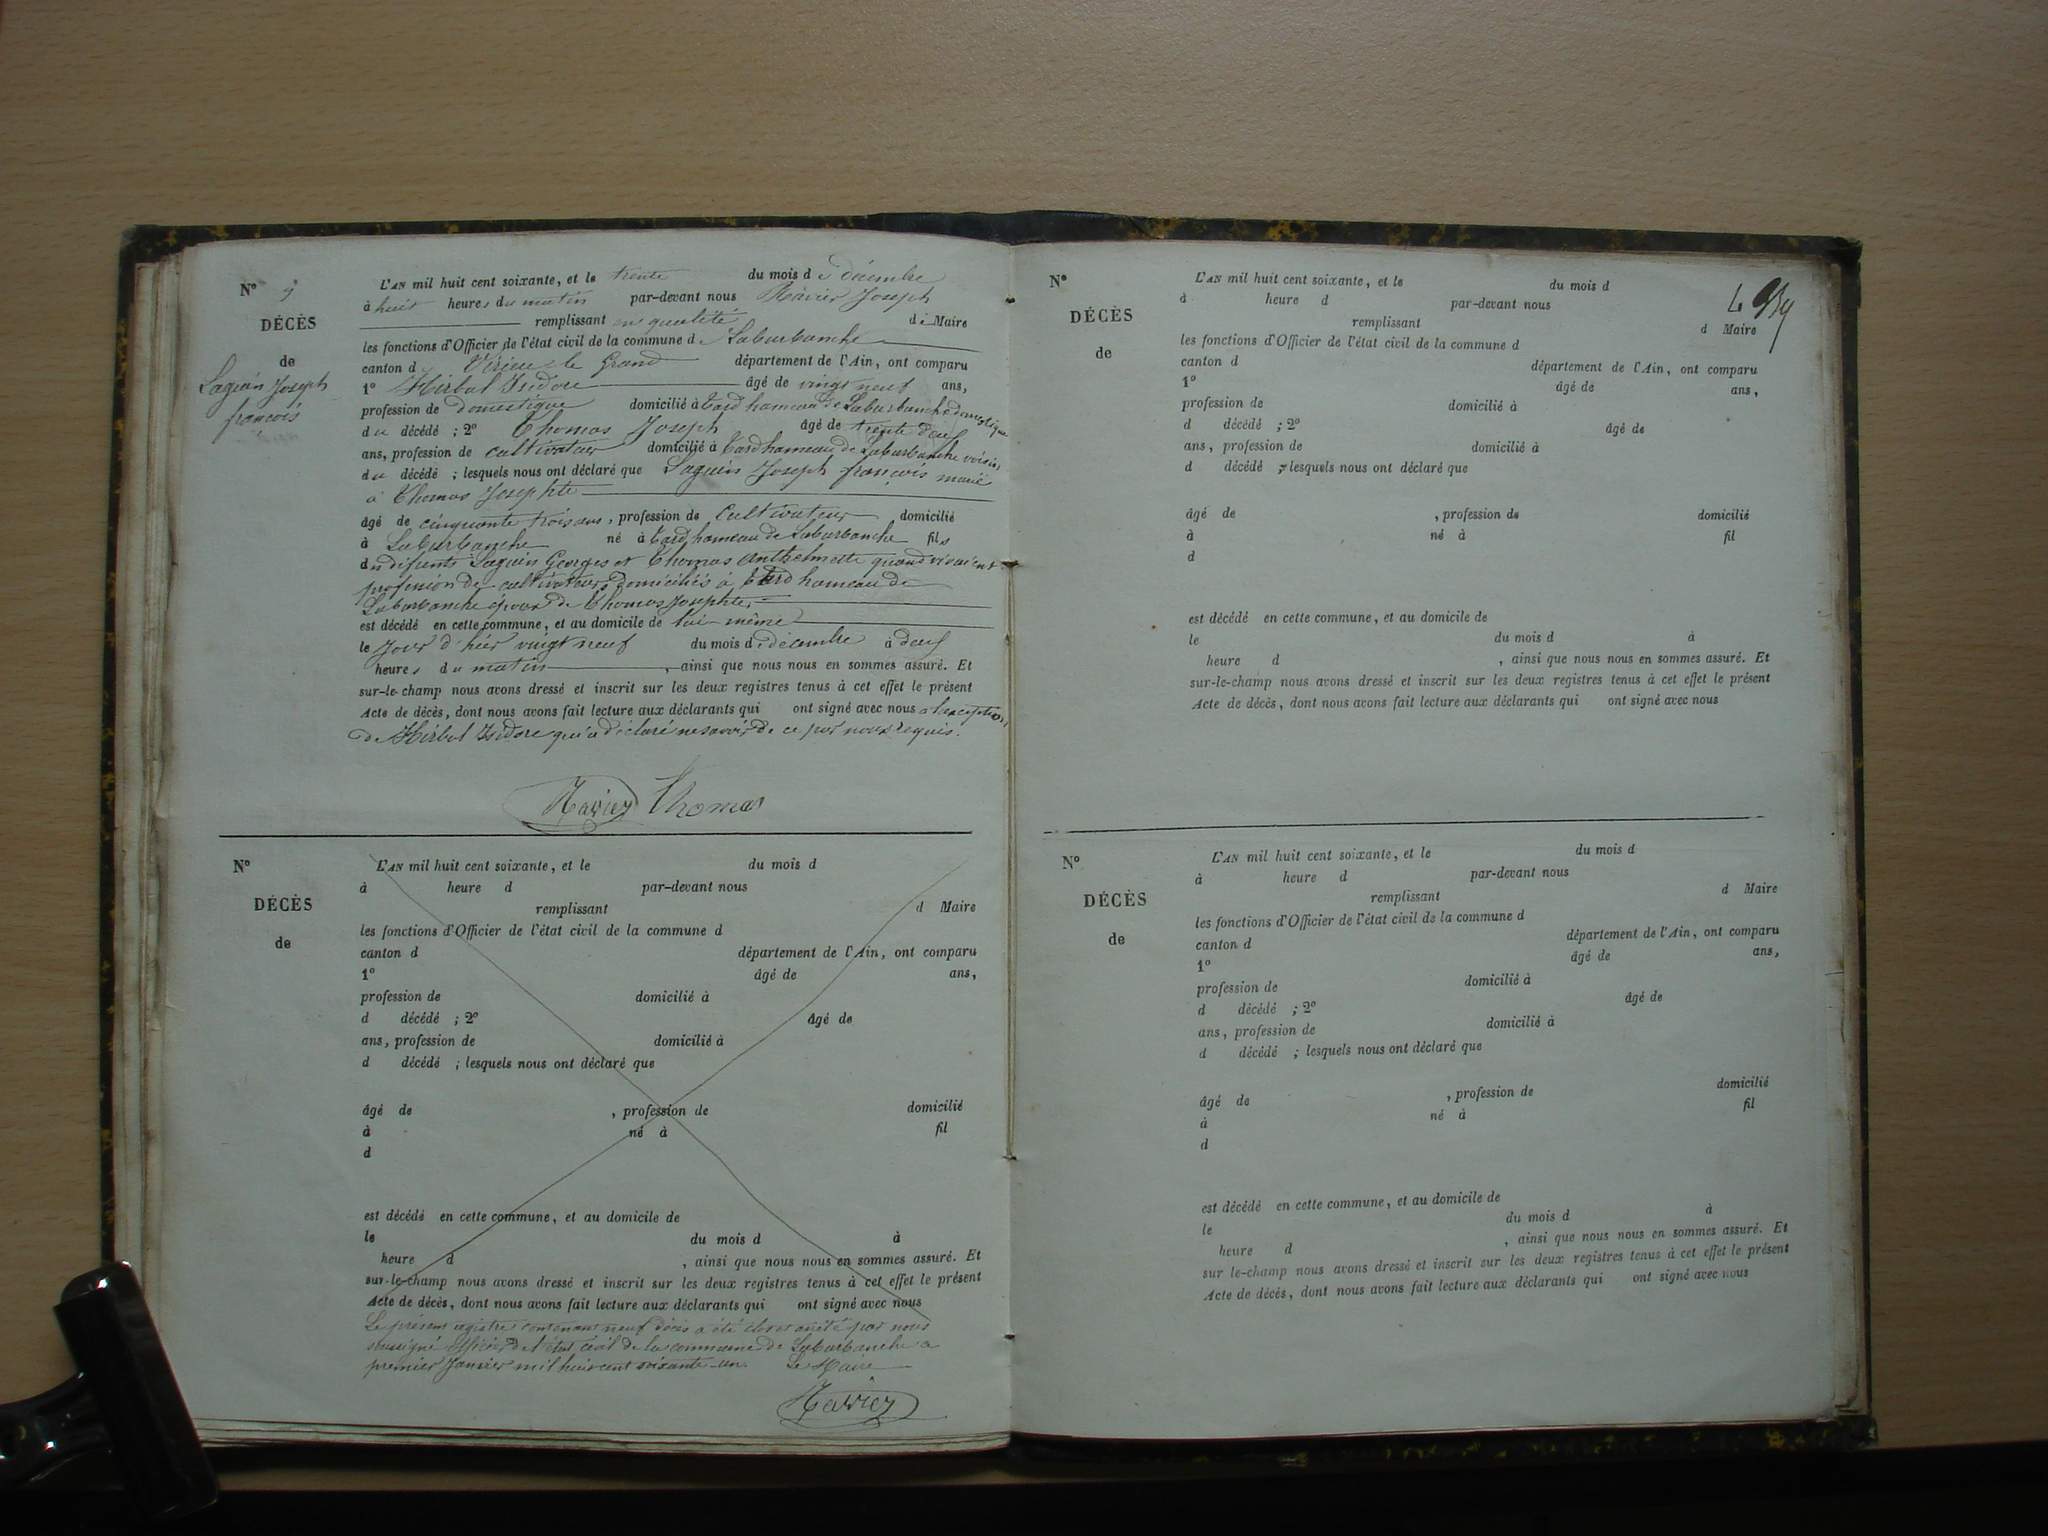 N° 9
DÉCÈS
de
Laguin Joseph
françois
L'AN mil huit cent soixante, et le trente du mois de décembre
à huit heures du matin par-devant nous Ravier Joseph
remplissant en qualité de Maire
les fonctions d'Officier de l'état civil de la commune de Laburbanche
canton de Virieu le Grand département de l'Ain, ont comparu
1° Isidore âgé de vingt neuf ans,
profession de domestique domicilié à hameau de Laburbanche domestique
du décédé ; 2° Thomas Joseph âgé de trente deux
ans, profession de cultivateur domicilié à hameau de Laburbanche voisin
du décédé ; lesquels nous ont déclaré que Laguin Joseph françois marié
à Thomas Josephte
âgé de cinquante trois ans, profession de cultivateur domicilié
à Laburbanche né à hameau de Laburbanche fils
du défunts Laguin Georges et Thomas Anthelmette quand vivaient
profession de cultivateurs domiciliés à hameau de
Laburbanche époux de Thomas Josephte
est décédé en cette commune, et au domicile de lui-même
le jour d'hier vingt neuf du mois de décembre à deux
heures du matin, ainsi que nous nous en sommes assuré. Et
sur-le-champ nous avons dressé et inscrit sur les deux registres tenus à cet effet le présent
Acte de décès, dont nous avons fait lecture aux déclarants qui ont signé avec nous a lexception
de Isidore qui a déclaré ne savoir de ce par nous requis.
Ravier Thomas
N°
DÉCÈS
de
L'AN mil huit cent soixante, et le du mois d
à heure d par-devant nous
remplissant d Maire
les fonctions d'Officier de l'état civil de la commune d
canton d département de l'Ain, ont comparu
1° âgé de ans,
profession de domicilié à
d décédé ; 2° âgé de
ans, profession de domicilié à
d décédé ; lesquels nous ont déclaré que
âgé de , profession de domicilié
à né à fil
d
est décédé en cette commune, et au domicile de
le du mois d à
heure d , ainsi que nous nous en sommes assuré. Et
sur-le-champ nous avons dressé et inscrit sur les deux registres tenus à cet effet le présent
Acte de décès, dont nous avons fait lecture aux déclarants qui ont signé avec nous
Le présent registre contenant neuf décès a été clos et arrêté par nous
soussigné officier de l'état civil de la commune de Laburbanche a
premier Janvier mil huit cent soixante-un. Le Maire
Ravier
N°
DÉCÈS
de
L'AN mil huit cent soixante, et le du mois d
à heure d par-devant nous
remplissant d Maire
les fonctions d'Officier de l'état civil de la commune d
canton d département de l'Ain, ont comparu
1° âgé de ans,
profession de domicilié à
d décédé ; 2° âgé de
ans, profession de domicilié à
d décédé ; lesquels nous ont déclaré que
âgé de , profession de domicilié
à né à fil
d
est décédé en cette commune, et au domicile de
le du mois d à
heure d , ainsi que nous nous en sommes assuré. Et
sur-le-champ nous avons dressé et inscrit sur les deux registres tenus à cet effet le présent
Acte de décès, dont nous avons fait lecture aux déclarants qui ont signé avec nous
N°
DÉCÈS
de
L'AN mil huit cent soixante, et le du mois d
à heure d par-devant nous
remplissant d Maire
les fonctions d'Officier de l'état civil de la commune d
canton d département de l'Ain, ont comparu
1° âgé de ans,
profession de domicilié à
d décédé ; 2° âgé de
ans, profession de domicilié à
d décédé ; lesquels nous ont déclaré que
âgé de , profession de domicilié
à né à fil
d
est décédé en cette commune, et au domicile de
le du mois d à
heure d , ainsi que nous nous en sommes assuré. Et
sur le-champ nous avons dressé et inscrit sur les deux registres tenus à cet effet le présent
Acte de décès, dont nous avons fait lecture aux déclarants qui ont signé avec nous